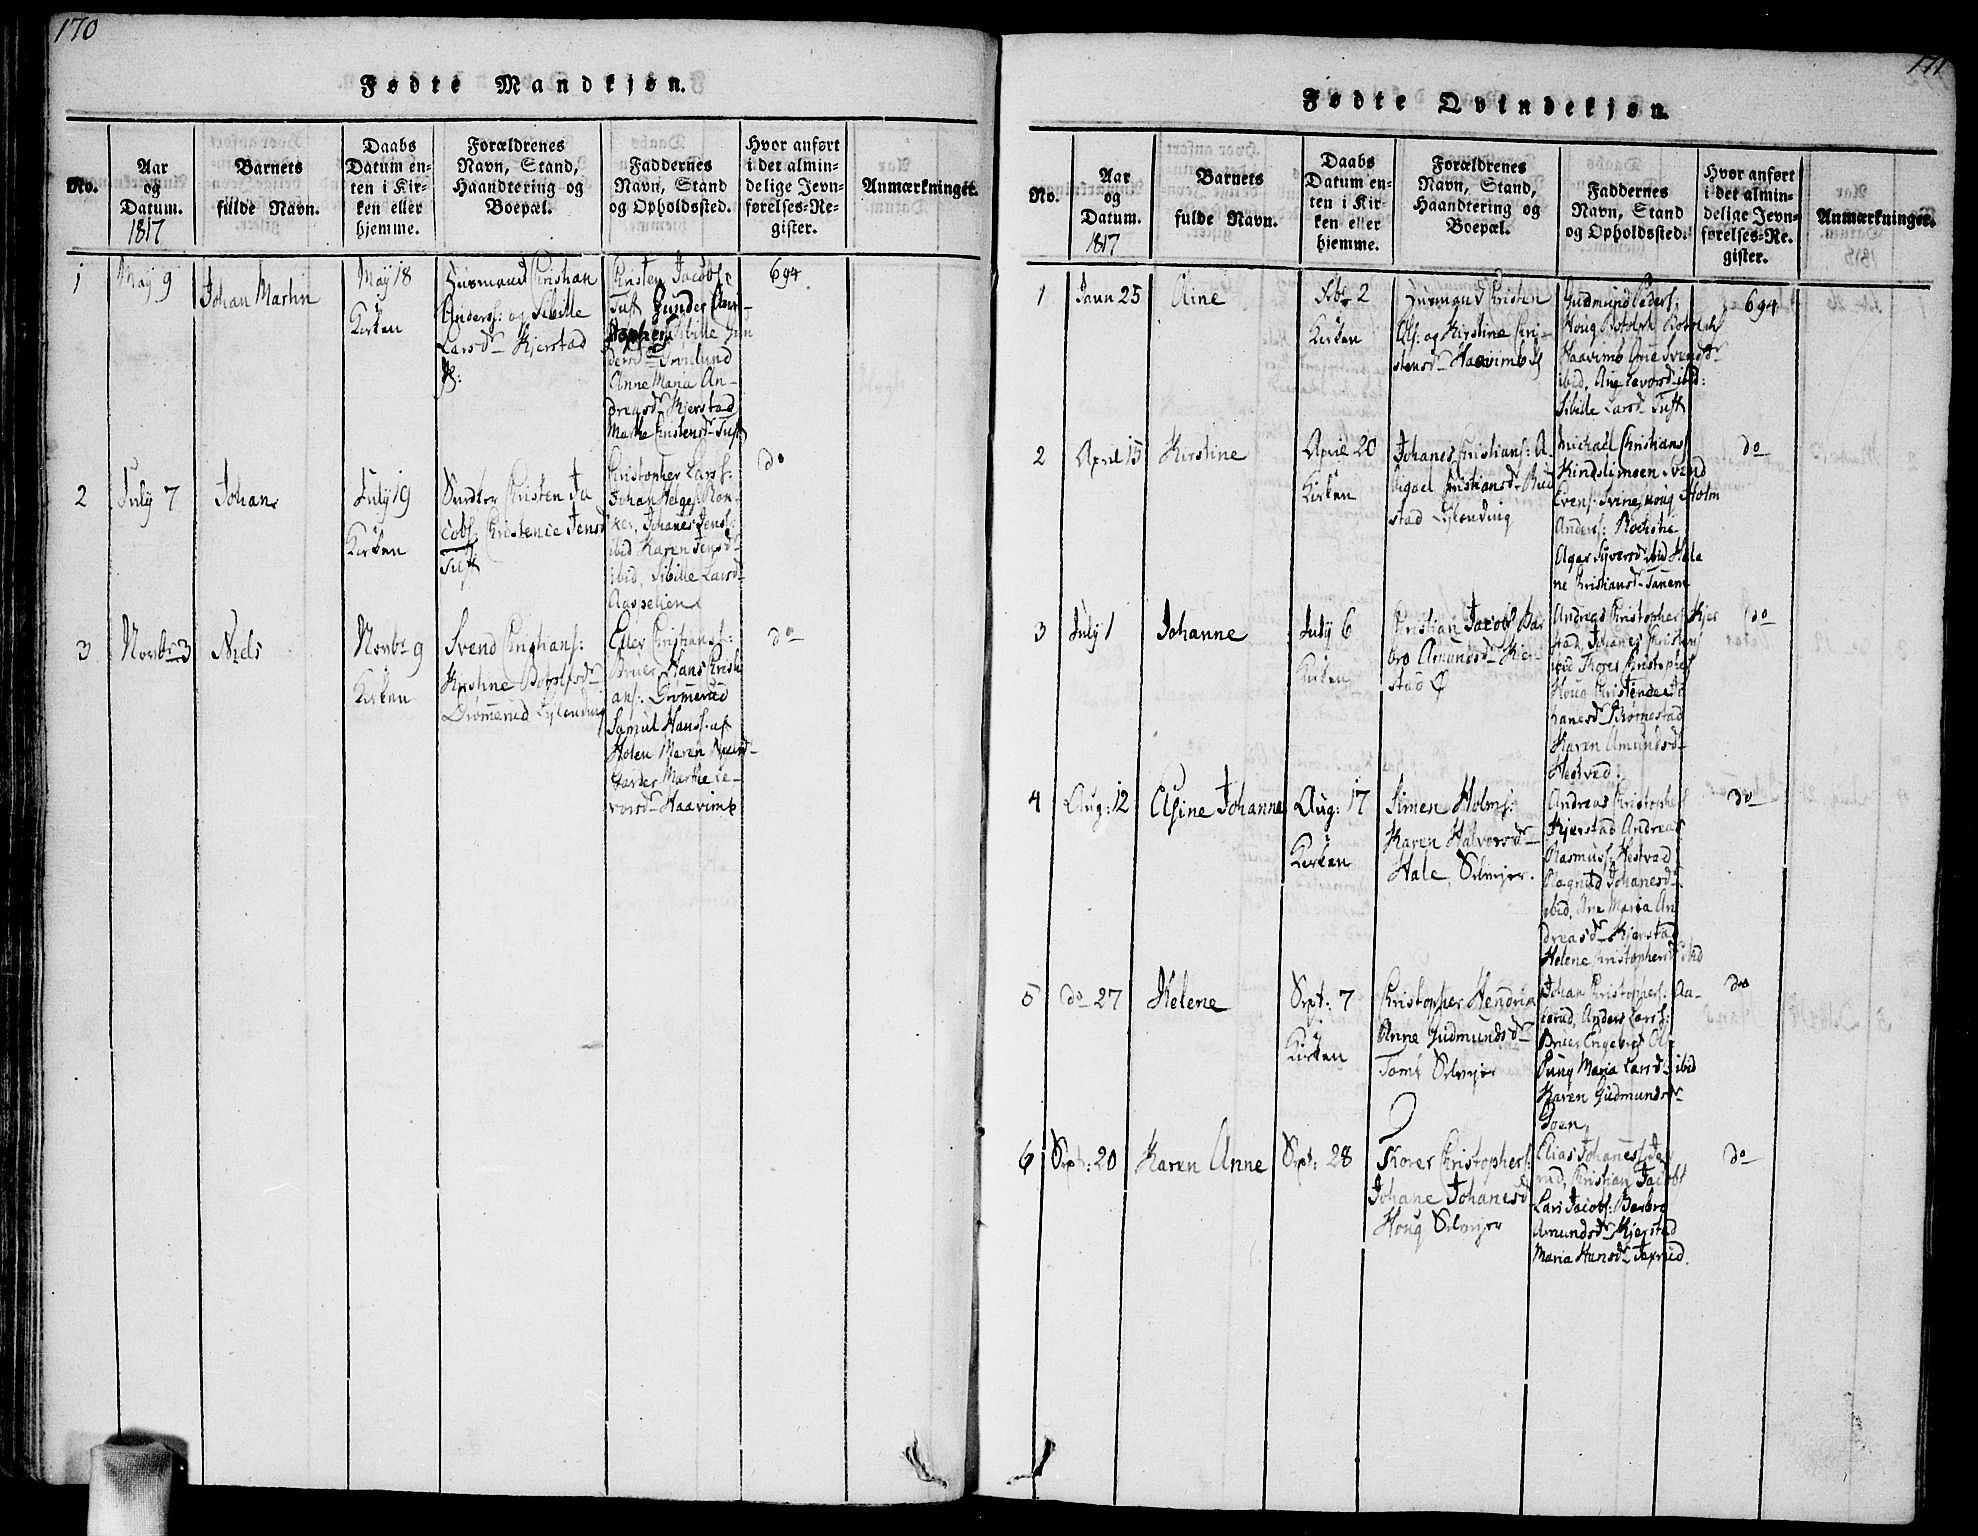 170
Fødte Mandkjøn.
No.
Aar
og
Datum.
1817
Barnets
fulde Navn.
Daabs
Datum en-
ten i Kir-
ken eller
hjemme.
Forældrenes
Navn, Stand,
Haandtering og
Boepæl.
Faddernes
Navn, Stand
og Opholdssted.
Hvor anført
i det almin-
delige Jevn-
førelses-Re-
gister.
Anmærkninger.
1
May 9
Johan Martin
May 18
Kirken
Huusmand Christian
Anders: og Sibille
Larsdr Kjerstad
Christen Jacobs:
Tuft Gunder
Sibille Gun
dersdr
Anne Maria An-
dreasdr Kjerstad
Marthe Christensdr Tuft
694
2
July 7
Johan
July 19
Kirken
Christen Ja
cobs: Christence Jensd
Tuft
Christopher Lars:
Johan Helges:
Johanes Jens:
ibid Karen Jensdr
ibid, Sibille Larsdr
Aaspelien
do
3
Novbr 3
Niels
Novbr 9
Kirken
Svend Christians:
Kirstine Botolfsdr
Grømerud
Eller Christians:
Bruer Hans Christi
ans: Grømerud
Samul Hans: af
Holen Maren
Marthe Le-
vorsdr Haavimb
do
171
Fødte Qvindekjøn.
No.
Aar
og
Datum.
1817
Barnets
fulde Navn.
Daabs
Datum en-
ten i Kir-
ken eller
hjemme.
Forældrenes
Navn, Stand,
Haandtering og
Boepæl.
Faddernes
Navn, Stand
og Opholdssted.
Hvor anført
i det almin-
delige Jevn-
førelses-Re-
gister.
Anmærkninger.
1
Janu 25
Aine
Febr 2
Kirken
Huusmand Christen
Ols: og Kirstine Chri-
stensdr Haavimb
Gudmund Peders:
Houg Botolph Botolphs
Haavimb Ane Svendsdr
ibid, Ane Levorsd ibid:
Sibille Larsd Tuft
694
2
April 15
Kirstine
April 20
Kirken
Johanes Christians: A
bigael Christiansdr Rud
stad
Michael Christians
Kindslimoen Svend
Evens: Svinehoug Holm
Anders:
Syversd ibid Hele
ne Christiansdr Tanem
do
3
July 1
Johanne
July 6
Kirken
Christian Jacobs Bar
bro Amundsdr Kjer
stad
Andreas Christophers Kjer
stad, Johanes Christens
ibid Thores Christophers
Houg Christence Jo
hanesdr Biørnestad
Karen Amundsdr
Hestved.
do
4
Aug: 12
Elsine Johanne
Aug: 17
Kirken
Simen Holms:
Karen Halvorsdr
Hale, Selvejer.
Andreas Christophers
Kjerstad Andreas
Rasmus: Hestvad
Ragnild Johanesdr
ibid, Ane Maria An
dreasdr Kjerstad
Helene Christophersd ibid
do
5
do 27
Helene
Sept: 7
Kirken
Christopher Hendrik
Anne Gudmundsdr
Selvejer
Johan Christophers: Aa-
serud, Anders Lars:
Bruer Engebret Ols
Pung Maria Larsd ibid
Karen Gudmundsdr
Moen
do
6
Sept: 20
Karen Anne
Sept: 28
Thorer Christophers:
Johane Johanesd
Houg Selvejer
Elias Johanes: Jex
rud, Christian Jacobs
Lars Jacobs: Barbro
Amundsdr Kjerstad
Maria Hansdr Jexrud.
do